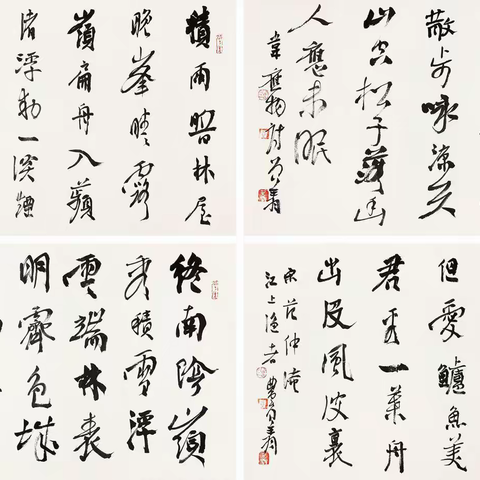 散步咏涼天
山空松子落幽
人應未眠
韋應物詩
積雨暗林屋
晚峯晴露
巔扁舟入蘋
渚浮動一溪煙
但愛鱸魚美
君看一葉舟
出没風波裏
宋范仲淹
江上漁者
終南陰嶺
秀積雪浮
雲端林表
明霽色城